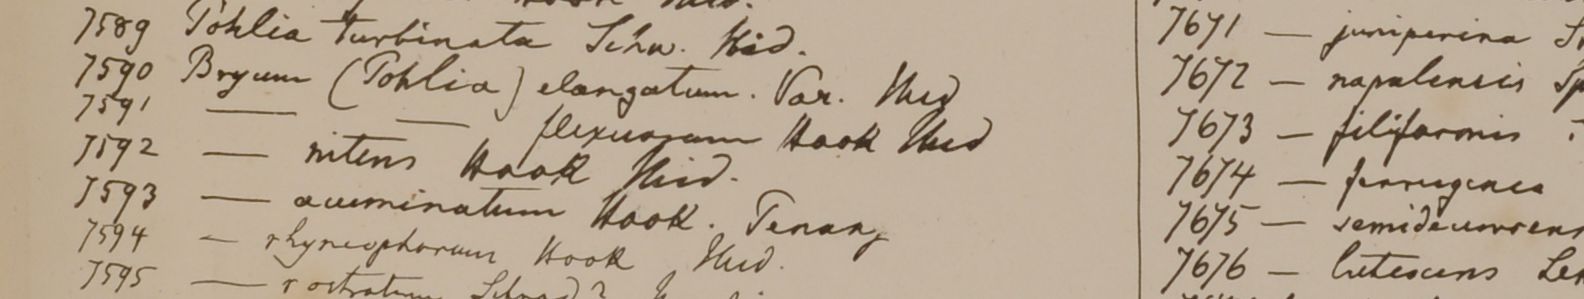 7589 Pohlia turbinata Schw. Hid.
7590 Bryum (Pohlia) elongatum. Var. Hid
7591 — — flexuosum Hook Hid
7592 — nitens Hook Hid.
7593 — acuminatum Hook. Penang
7594 — rhyncophorum Hook Hid.
7595 — rostratum Schrad?
7671 — juniperina
7672 — napalensis
7673 — filiformis
7674 — ferruginea
7675 — semidecurrens
7676 — lutescens